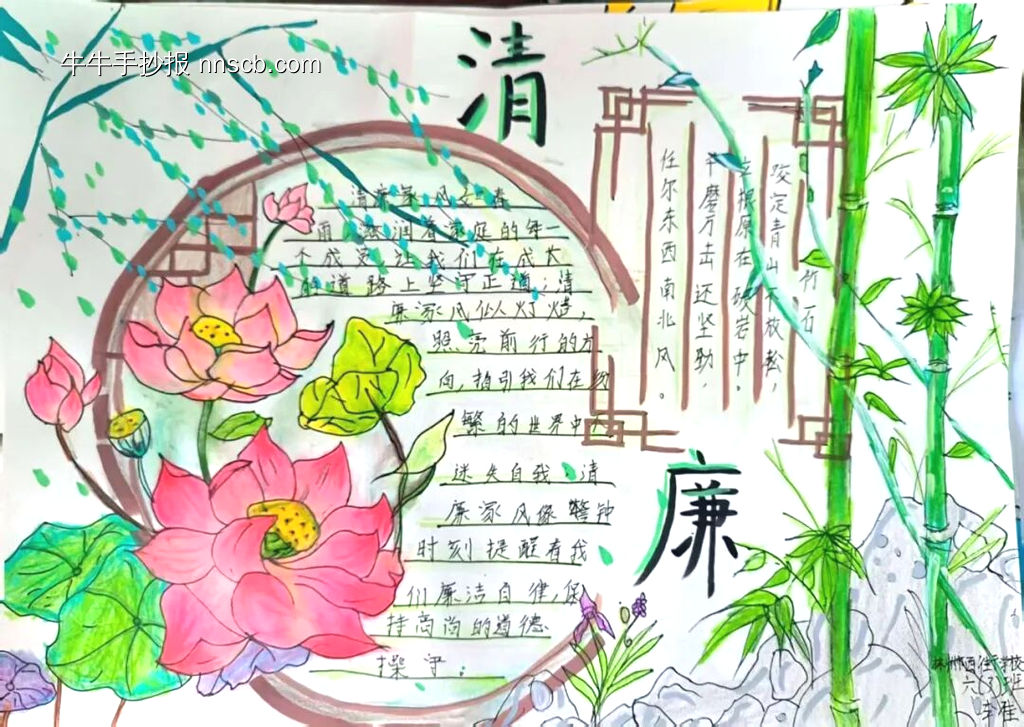 牛牛手抄报 nnscb.com
清
廉
清廉家风如春
雨，滋润着家庭的每一
个成员，让我们在成长
的道路上坚守正道；清
廉家风似灯塔，
照亮前行的方
向，指引我们在纷
繁的世界中不
迷失自我；清
廉家风像警钟
时刻提醒着我
们廉洁自律，保
持高尚的道德
操守。
竹石
咬定青山不放松，
立根原在破岩中。
千磨万击还坚劲，
任尔东西南北风。
学校
六(7)班